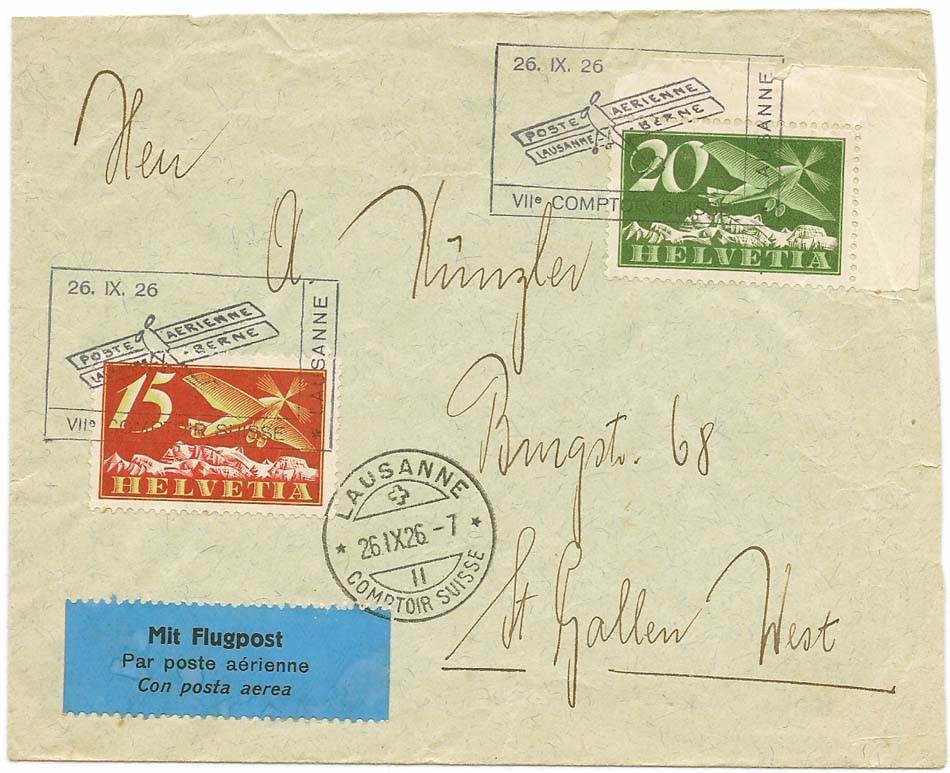 26. IX. 26
POSTE AERIENNE
LAUSANNE - BERNE
VIIe COMPTOIR SUISSE
LAUSANNE
20
HELVETIA
Herr
A Künzler
26. IX. 26
POSTE AERIENNE
LAUSANNE - BERNE
VIIe COMPTOIR SUISSE
* LAUSANNE
15
HELVETIA
Burgstr. 68
LAUSANNE
* 26.IX.26.-7 *
11
COMPTOIR SUISSE
St Gallen West
Mit Flugpost
Par poste aérienne
Con posta aerea